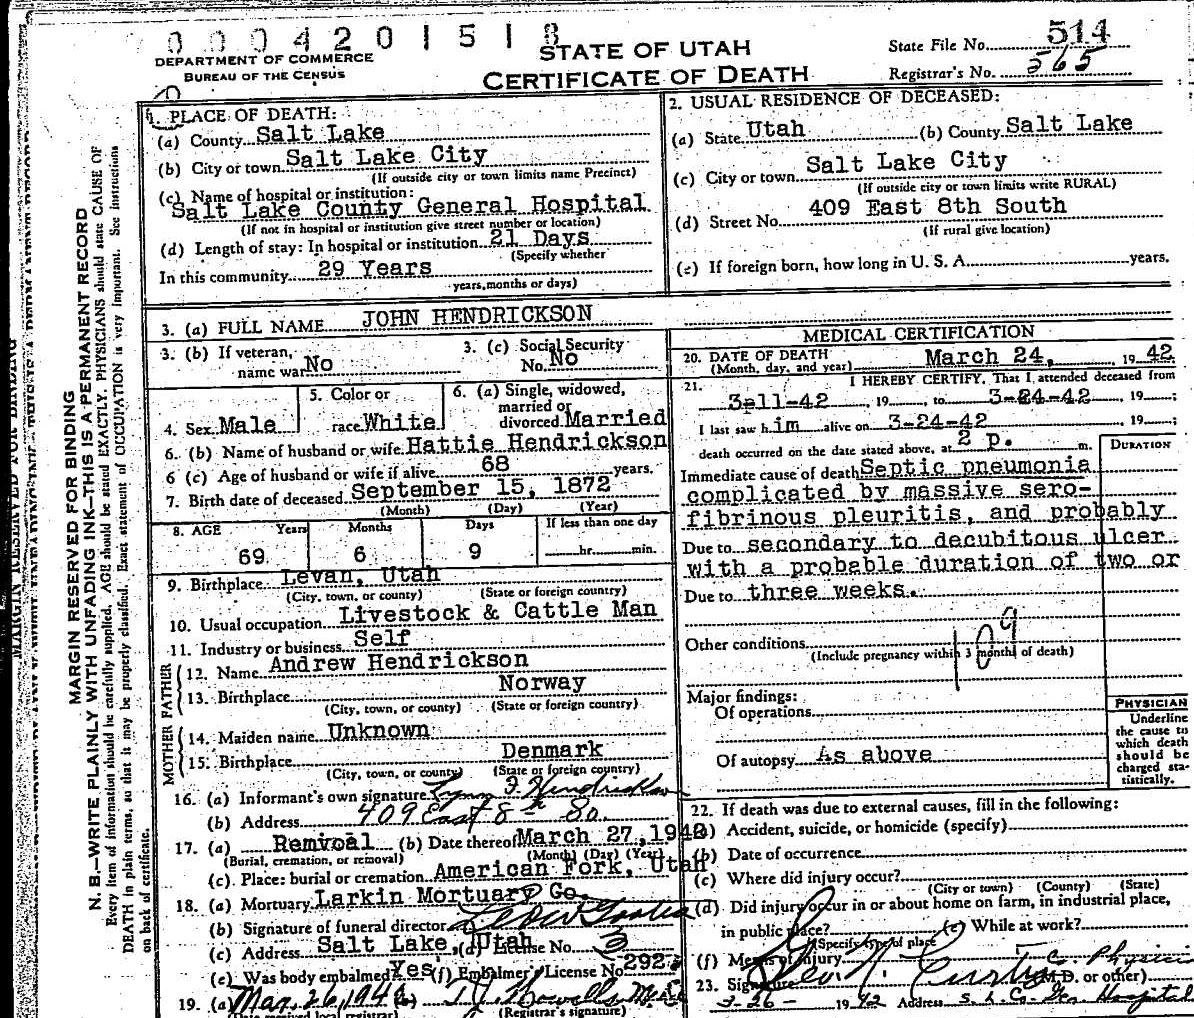 0004201518
DEPARTMENT OF COMMERCE
BUREAU OF THE CENSUS
STATE OF UTAH
CERTIFICATE OF DEATH
State File No. 514
Registrar's No. 565
MARGIN RESERVED FOR BINDING
N. B.—WRITE PLAINLY WITH UNFADING INK—THIS IS A PERMANENT RECORD
Every item of information should be carefully supplied. AGE should be stated EXACTLY. PHYSICIANS should state CAUSE OF
DEATH in plain terms, so that it may be properly classified. Exact statement of OCCUPATION is very important. See instructions
on back of certificate.
1. PLACE OF DEATH:
(a) County Salt Lake
(b) City or town Salt Lake City
(If outside city or town limits name Precinct)
(c) Name of hospital or institution:
Salt Lake County General Hospital
(If not in hospital or institution give street number or location)
(d) Length of stay: In hospital or institution 21 Days
(Specify whether
In this community 29 Years
years, months or days)
2. USUAL RESIDENCE OF DECEASED:
(a) State Utah (b) County Salt Lake
(c) City or town Salt Lake City
(If outside city or town limits write RURAL)
(d) Street No. 409 East 8th South
(If rural give location)
(e) If foreign born, how long in U. S. A. years.
3. (a) FULL NAME JOHN HENDRICKSON
3. (b) If veteran, name war No
3. (c) Social Security No. No
4. Sex Male
5. Color or race White
6. (a) Single, widowed, married or divorced Married
6. (b) Name of husband or wife Hattie Hendrickson
6 (c) Age of husband or wife if alive 68 years.
7. Birth date of deceased September 15, 1872
(Month) (Day) (Year)
8. AGE Years Months Days If less than one day
69 6 9 hr. min.
9. Birthplace Levan, Utah
(City, town, or county) (State or foreign country)
10. Usual occupation Livestock & Cattle Man
11. Industry or business Self
FATHER
12. Name Andrew Hendrickson
13. Birthplace Norway
(City, town, or county) (State or foreign country)
MOTHER
14. Maiden name Unknown
15. Birthplace Denmark
(City, town, or county) (State or foreign country)
16. (a) Informant's own signature Lynn F. Hendrickson
(b) Address 409 East 8th So.
17. (a) Removal (b) Date thereof March 27, 1942
(Burial, cremation, or removal) (Month) (Day) (Year)
(c) Place: burial or cremation American Fork, Utah
18. (a) Mortuary Larkin Mortuary Co.
(b) Signature of funeral director
(c) Address Salt Lake, Utah (d) License No. 3
(e) Was body embalmed Yes (f) Embalmer's License No. 292
19. (a) Mar. 26, 1942 (b)
(Date received local registrar) (Registrar's signature)
MEDICAL CERTIFICATION
20. DATE OF DEATH March 24, 1942
(Month, day, and year)
21. I HEREBY CERTIFY, That I attended deceased from
3-11-42, 19 , to 3-24-42, 19 ;
I last saw him alive on 3-24-42, 19 ;
death occurred on the date stated above, at 2 p. m.
DURATION
Immediate cause of death Septic pneumonia
complicated by massive sero-
fibrinous pleuritis, and probably
Due to secondary to decubitous ulcer
with a probable duration of two or
Due to three weeks.
109
Other conditions
(Include pregnancy within 3 months of death)
Major findings:
Of operations
Of autopsy As above
PHYSICIAN
Underline
the cause to
which death
should be
charged sta-
tistically.
22. If death was due to external causes, fill in the following:
(a) Accident, suicide, or homicide (specify)
(b) Date of occurrence
(c) Where did injury occur?
(City or town) (County) (State)
(d) Did injury occur in or about home on farm, in industrial place,
in public place? (e) While at work?
(Specify type of place
(f) Means of injury
23. Signature Geo. N. Curtis (M.D. or other)
3-26- 1942 Address S. L. Co. Gen. Hospital